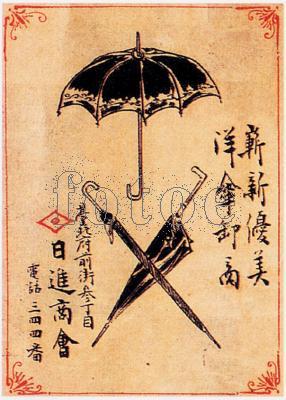 嶄新優美
洋傘卸商
臺北府前街參丁目
日進商會
電話三四四番
fotoe